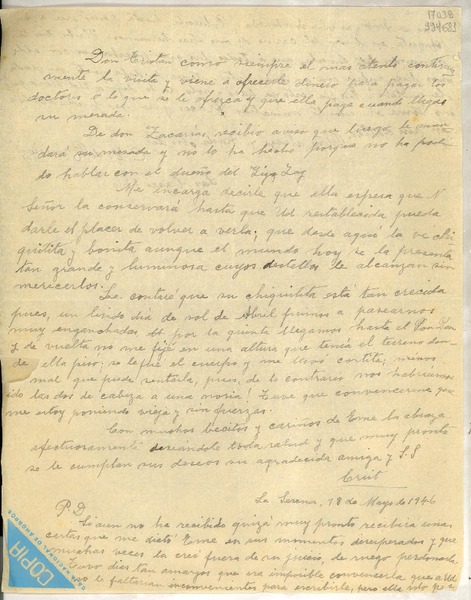 17038
Don Tristan como siempre el mas atento contí-
mente la visita y viene a ofrecerle dinero para pagar los
doctores o lo que se le ofrezca y que ella paga cuando llegue
su mesada.
De don Zacarias recibio aviso que luego le man
dará su mesada y no lo ha hecho porque no ha podi-
do hablar con el dueño del Zig Zag
Me encarga decirle que ella espera que N
Señor la conservará hasta que Ud restablecida pueda
darle el placer de volver a verla; que desde aquí la ve chi
quitita y bonita aunque el mundo hoy se la presenta
tan grande y luminosa cuyos destellos le alcanzan sin
merecerlos.
Le contaré que su chiquitita está tan crecida
pues, un lindo dia de sol de Abril fuimos a pasearnos
muy enganchadas por la quinta llegamos hasta el
y de vuelta no me fijé en una altura que tenía el terreno don-
de ella piso; se le fué el cuerpo y me llevó cortita; menos
mal que pude sentarla, pues, de lo contrario nos habriamos
ido las dos de cabeza a una noria! Tuve que convencerme que
me estoy poniendo vieja y sin fuerzas.
Con muchos besitos y cariños de Eme la abraza
afectuosamente deseándole toda salud y que muy pronto
se le cumplan sus deseos su agradecida amiga y S.S
La Serena, 18 de Mayo de 1946
P D.
Si aun no ha recibido quizá muy pronto recibira unas
cartas que me dictó Eme en sus momentos desesperados y que
muchas veces la creí fuera de su juicio, le ruego perdonarla
Tuvo dias tan amargos que era imposible convencerla que a Ud
no le faltarian inconvenientes para escribirle, pero ella no
COPIA